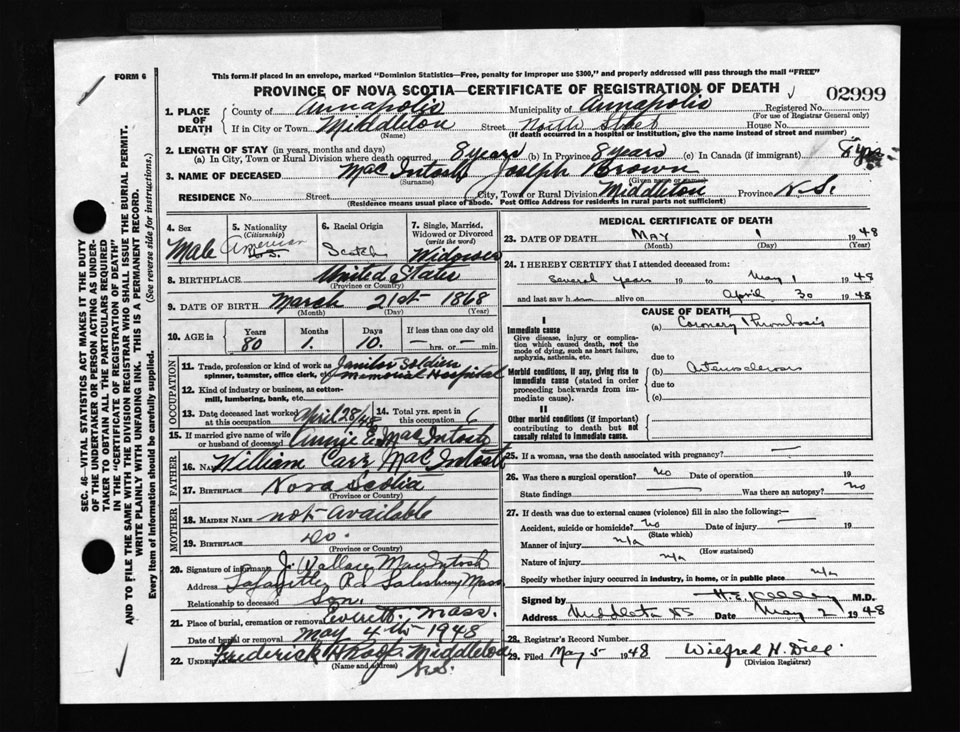 FORM 6
This form if placed in an envelope, marked "Dominion Statistics—Free, penalty for improper use $300," and properly addressed will pass through the mail "FREE"
PROVINCE OF NOVA SCOTIA—CERTIFICATE OF REGISTRATION OF DEATH
02999
1. PLACE OF DEATH
County of Annapolis Municipality of Annapolis Registered No.
(For use of Registrar General only)
If in City or Town Middleton Street House No.
(Name) (If death occurred in a hospital or institution, give the name instead of street and number)
2. LENGTH OF STAY (in years, months and days)
(a) In City, Town or Rural Division where death occurred 8 years (b) In Province 8 years (c) In Canada (if immigrant) 8 yrs
3. NAME OF DECEASED MacIntosh Joseph Brown
(Surname)
RESIDENCE No. Street City, Town or Rural Division Middleton Province N.S.
(Residence means usual place of abode. Post Office Address for residents in rural parts not sufficient)
4. Sex
Male
5. Nationality
(Citizenship)
American
U.S.
6. Racial Origin
Scotch
7. Single, Married, Widowed or Divorced
(write the word)
Widower
8. BIRTHPLACE United States
(Province or Country)
9. DATE OF BIRTH March 21st 1868
(Month) (Day) (Year)
10. AGE in Years Months Days If less than one day old
80 1. 10. — hrs. or — min.
OCCUPATION
11. Trade, profession or kind of work as spinner, teamster, office clerk, etc. Janitor Soldiers Memorial Hospital
12. Kind of industry or business, as cotton-mill, lumbering, bank, etc.
13. Date deceased last worked at this occupation April 28/48
14. Total yrs. spent in 6
15. If married give name of wife or husband of deceased Annie E. MacIntosh
FATHER
16. Name William Carr MacIntosh
17. Birthplace Nova Scotia
(Province or Country)
MOTHER
18. Maiden Name not available
19. Birthplace do.
(Province or Country)
20. Signature of informant J. Wallace MacIntosh
Address Lafayette Rd Salisbury Mass.
Relationship to deceased Son.
21. Place of burial, cremation or removal Everett, Mass.
Date of burial or removal May 4th 1948
22. Undertaker Frederick Middleton N.S.
(Name and address)
MEDICAL CERTIFICATE OF DEATH
23. DATE OF DEATH May 1 1948
(Month) (Day) (Year)
24. I HEREBY CERTIFY that I attended deceased from:
Several years 19 to May 1 1948
and last saw him alive on April 30 1948
CAUSE OF DEATH
I
Immediate cause
Give disease, injury or complication which caused death, not the mode of dying, such as heart failure, asphyxia, asthenia, etc.
(a) Coronary Thrombosis
due to
Morbid conditions, if any, giving rise to immediate cause (stated in order proceeding backwards from immediate cause).
(b) Arteriosclerosis
due to
(c)
II
Other morbid conditions (if important) contributing to death but not causally related to immediate cause.
25. If a woman, was the death associated with pregnancy?
26. Was there a surgical operation? No Date of operation 19
State findings Was there an autopsy? No
27. If death was due to external causes (violence) fill in also the following:—
Accident, suicide or homicide? No Date of injury 19
(State which)
Manner of injury n/a
(How sustained)
Nature of injury n/a
Specify whether injury occurred in industry, in home, or in public place n/a
Signed by M.D.
Address Middleton NS Date May 2 1948
28. Registrar's Record Number
29. Filed May 5 1948 Wilfred H.
(Division Registrar)
SEC. 46—VITAL STATISTICS ACT MAKES IT THE DUTY
OF THE UNDERTAKER OR PERSON ACTING AS UNDERTAKER TO OBTAIN ALL THE PARTICULARS REQUIRED
IN THE "CERTIFICATE OF REGISTRATION OF DEATH"
AND TO FILE THE SAME WITH THE DIVISION REGISTRAR WHO SHALL ISSUE THE BURIAL PERMIT.
WRITE PLAINLY WITH UNFADING INK. THIS IS A PERMANENT RECORD.
Every item of information should be carefully supplied. (See reverse side for instructions.)